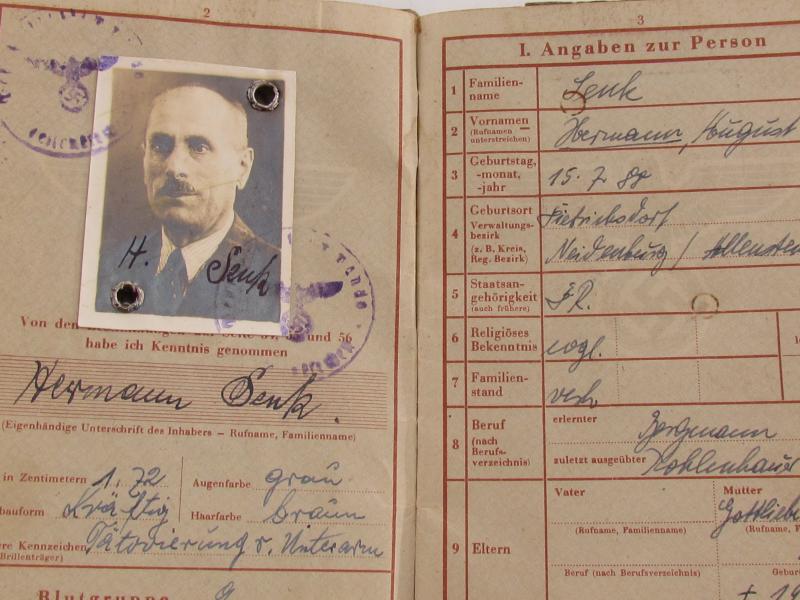 2
H. Senk
Von den
und 56
habe ich Kenntnis genommen
Hermann Senk.
(Eigenhändige Unterschrift des Inhabers – Rufname, Familienname)
in Zentimetern 1.72
Augenfarbe grau
bauform Kräftig
Haarfarbe braun
re Kennzeichen Tätowierung r. Unterarm
Brillenträger)
Blutgruppe
3
I. Angaben zur Person
1 Familien-
name
Senk
2 Vornamen
(Rufnamen
unterstreichen)
Hermann, August
3 Geburtstag,
-monat,
-jahr
15. 7. 88
4 Geburtsort
Verwaltungs-
bezirk
(z. B. Kreis,
Reg. Bezirk)
Neidenburg / Allenste
5 Staatsan-
gehörigkeit
(auch frühere)
6 Religiöses
Bekenntnis
evgl.
7 Familien-
stand
verh
8 Beruf
(nach
Berufs-
verzeichnis)
erlernter
Bergmann
zuletzt ausgeübter
Kohlenhauer
9 Eltern
Vater
(Rufname, Familienname)
Mutter
Gottliebe
(Rufname, F
Beruf (nach Berufsverzeichnis)
Gebur
+ 19